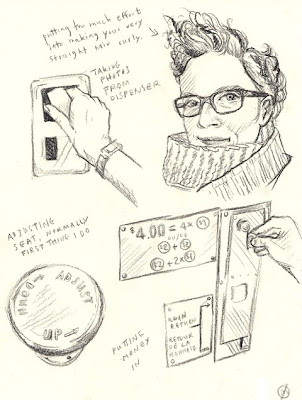 putting too much effort
into making your very
straight hair curly.
TAKING
PHOTOS
FROM
DISPENSER
ADJUSTING
SEAT, NORMALLY
FIRST THING I DO
ADJUST
UP
$4.00 = 4x $1
$2 + $2
$2 + 2x $1
COIN
RETURN
RETOUR
DE LA
MONNAIE
PUTTING
MONEY
IN